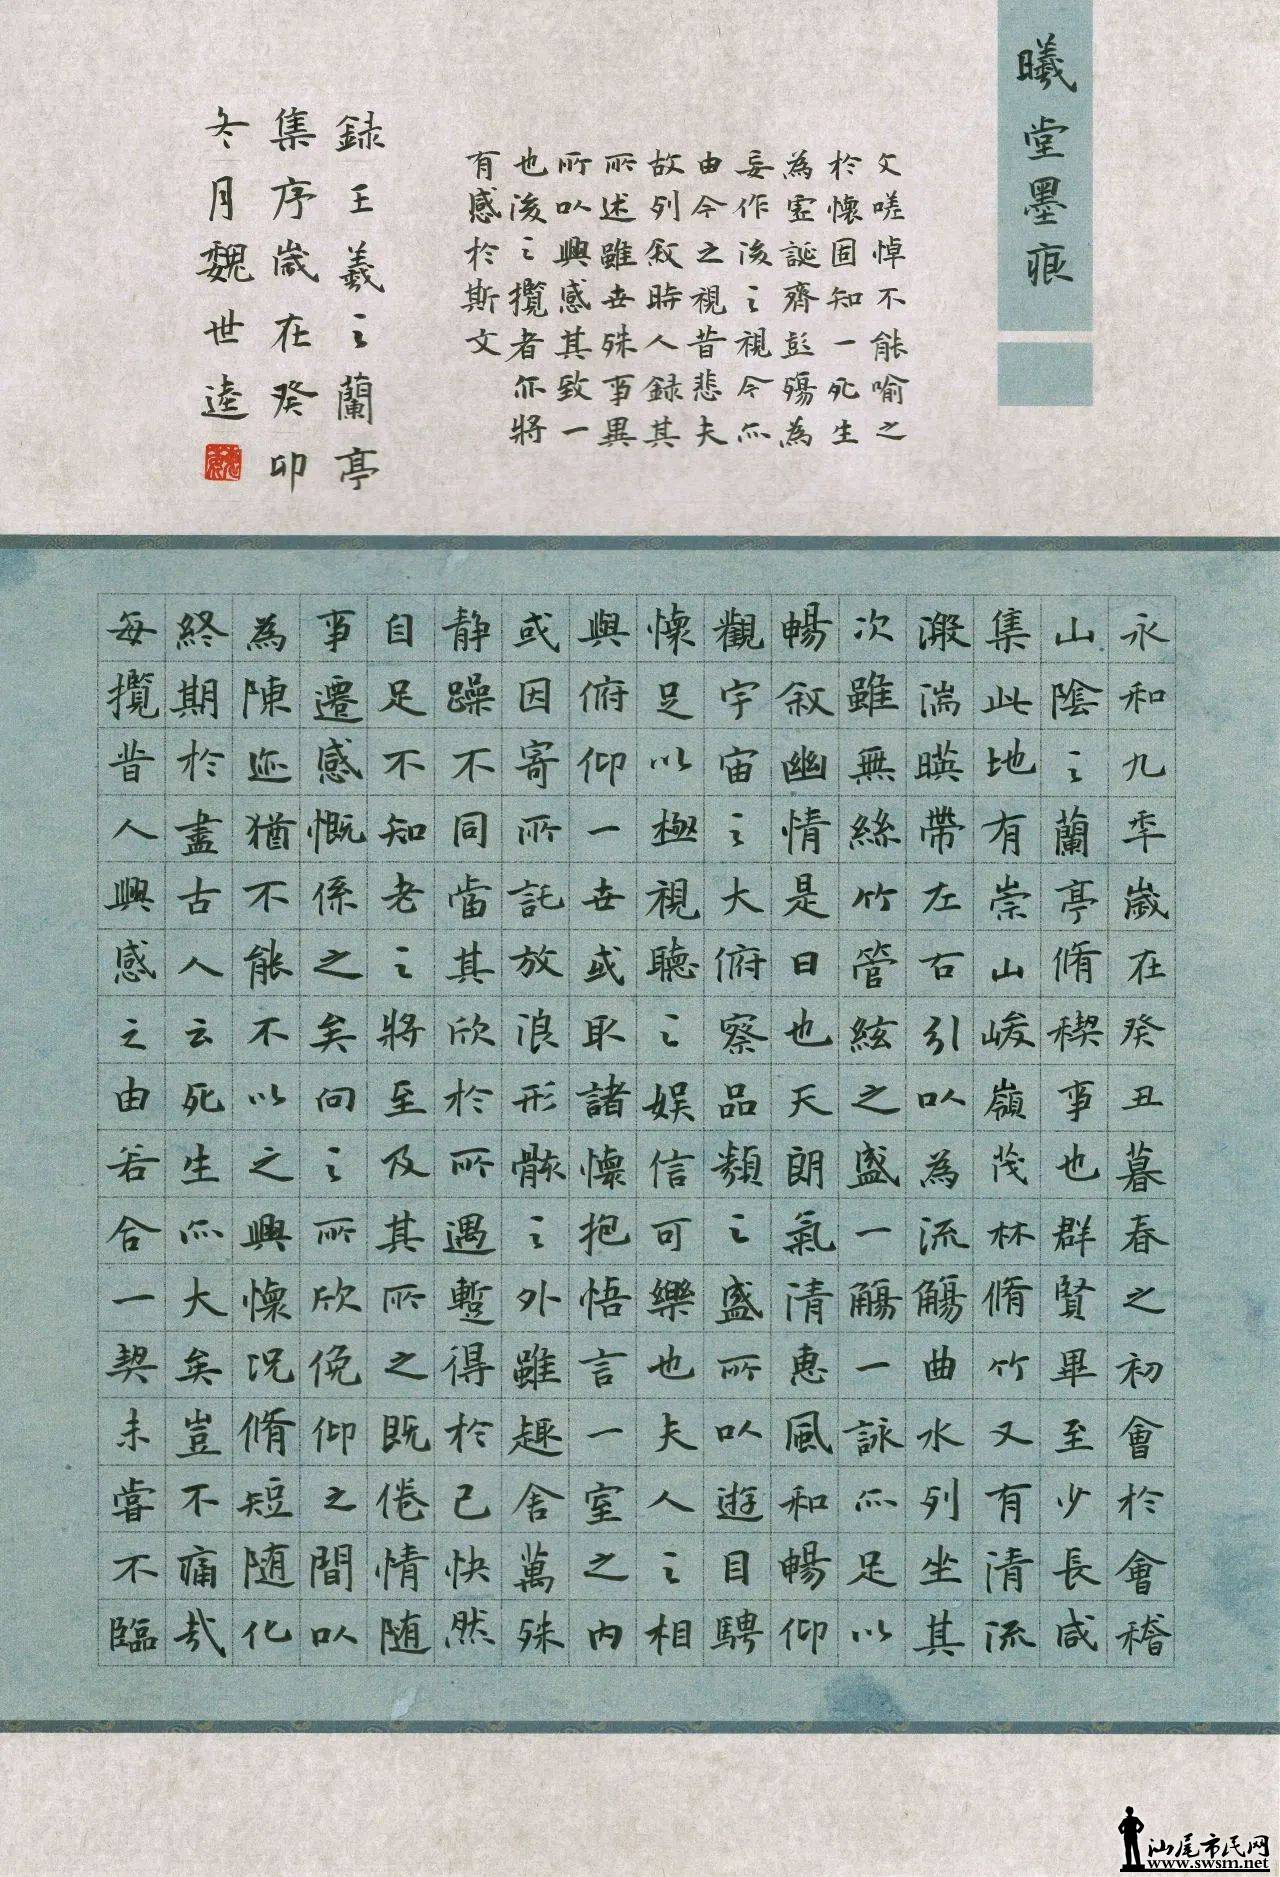 曦堂墨痕
永和九年歲在癸丑暮春之初會於會稽
山陰之蘭亭脩稧事也群賢畢至少長咸
集此地有崇山峻嶺茂林脩竹又有清流
激湍暎帶左右引以為流觴曲水列坐其
次雖無絲竹管絃之盛一觴一詠亦足以
暢叙幽情是日也天朗氣清惠風和暢仰
觀宇宙之大俯察品類之盛所以遊目騁
懷足以極視聽之娛信可樂也夫人之相
與俯仰一世或取諸懷抱悟言一室之內
或因寄所託放浪形骸之外雖趣舍萬殊
静躁不同當其欣於所遇蹔得於己快然
自足不知老之將至及其所之既倦情随
事遷感慨係之矣向之所欣俛仰之間以
為陳迹猶不能不以之興懷況脩短随化
終期於盡古人云死生亦大矣豈不痛哉
每攬昔人興感之由若合一契未嘗不臨
文嗟悼不能喻之
於懷固知一死生
為虛誕齊彭殤為
妄作後之視今亦
由今之視昔悲夫
故列叙時人録其
所述雖世殊事異
所以興感其致一
也後之攬者亦將
有感於斯文
録王羲之蘭亭
集序歲在癸卯
冬月魏世逵
汕尾市民网
www.swsm.net